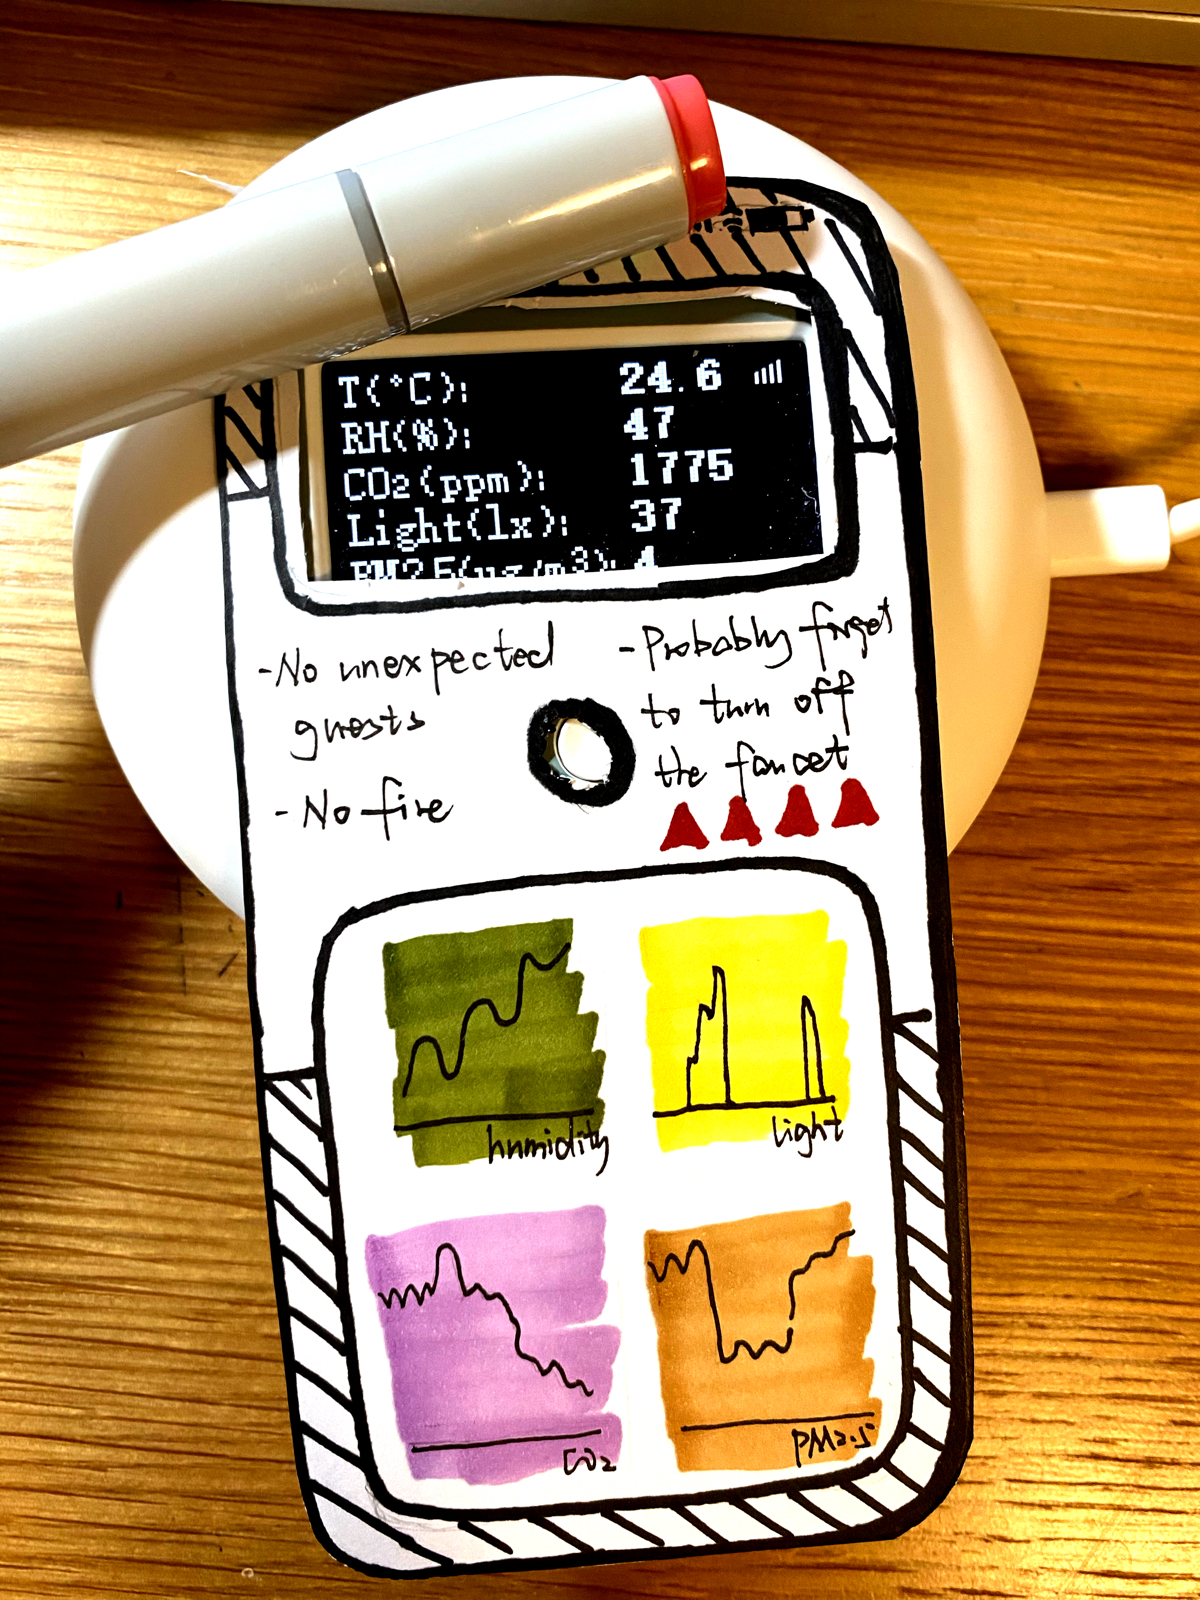 T(°C): 24.6
RH(%): 47
CO₂(ppm): 1775
Light(lx): 37
PM2.5(ug/m³): 4
-No unexpected
guests
-No fire
-Probably forget
to turn off
the faucet
humidity
light
CO₂
PM2.5